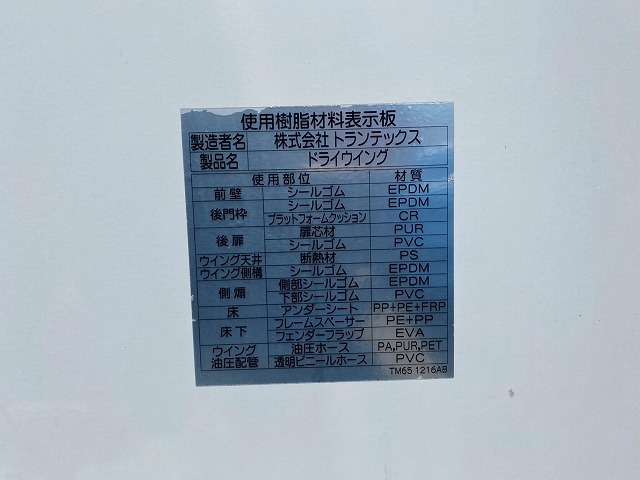 使用樹脂材料表示板
製造者名 株式会社 トランテックス
製品名 ドライウイング
使用部位 材質
前壁 シールゴム EPDM
後門枠 シールゴム EPDM
プラットフォームクッション CR
後扉 扉芯材 PUR
シールゴム PVC
ウイング天井 断熱材 PS
ウイング側構 シールゴム EPDM
側煽 側部シールゴム EPDM
下部シールゴム PVC
床 アンダーシート PP+PE+FRP
床下 フレームスペーサー PE+PP
フェンダーフラップ EVA
ウイング 油圧ホース PA,PUR,PET
油圧配管 透明ビニールホース PVC
TM65 1216AB